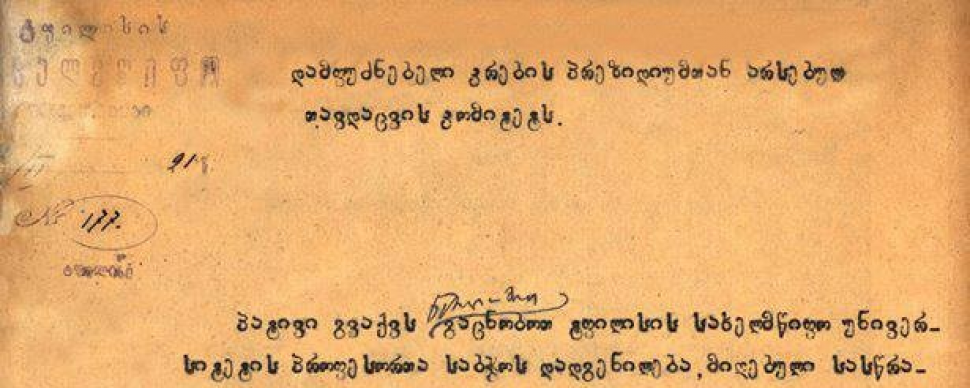 ტფილისის
დამფუძნებელი კრების პრეზიდიუმთან არსებულ
თავდაცვის კომიტეტს.
21
№ 177.
ტფილისი
პატივი გვაქვს გაცნობოთ ტფილისის სახელმწიფო უნივერ-
სიტეტის პროფესორთა საბჭოს დადგენილება, მიღებული სასწრა-